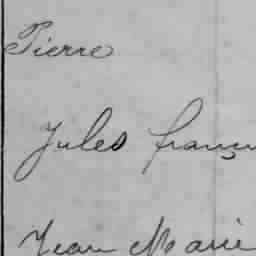 Pierre
Jules franç
Jean Marie